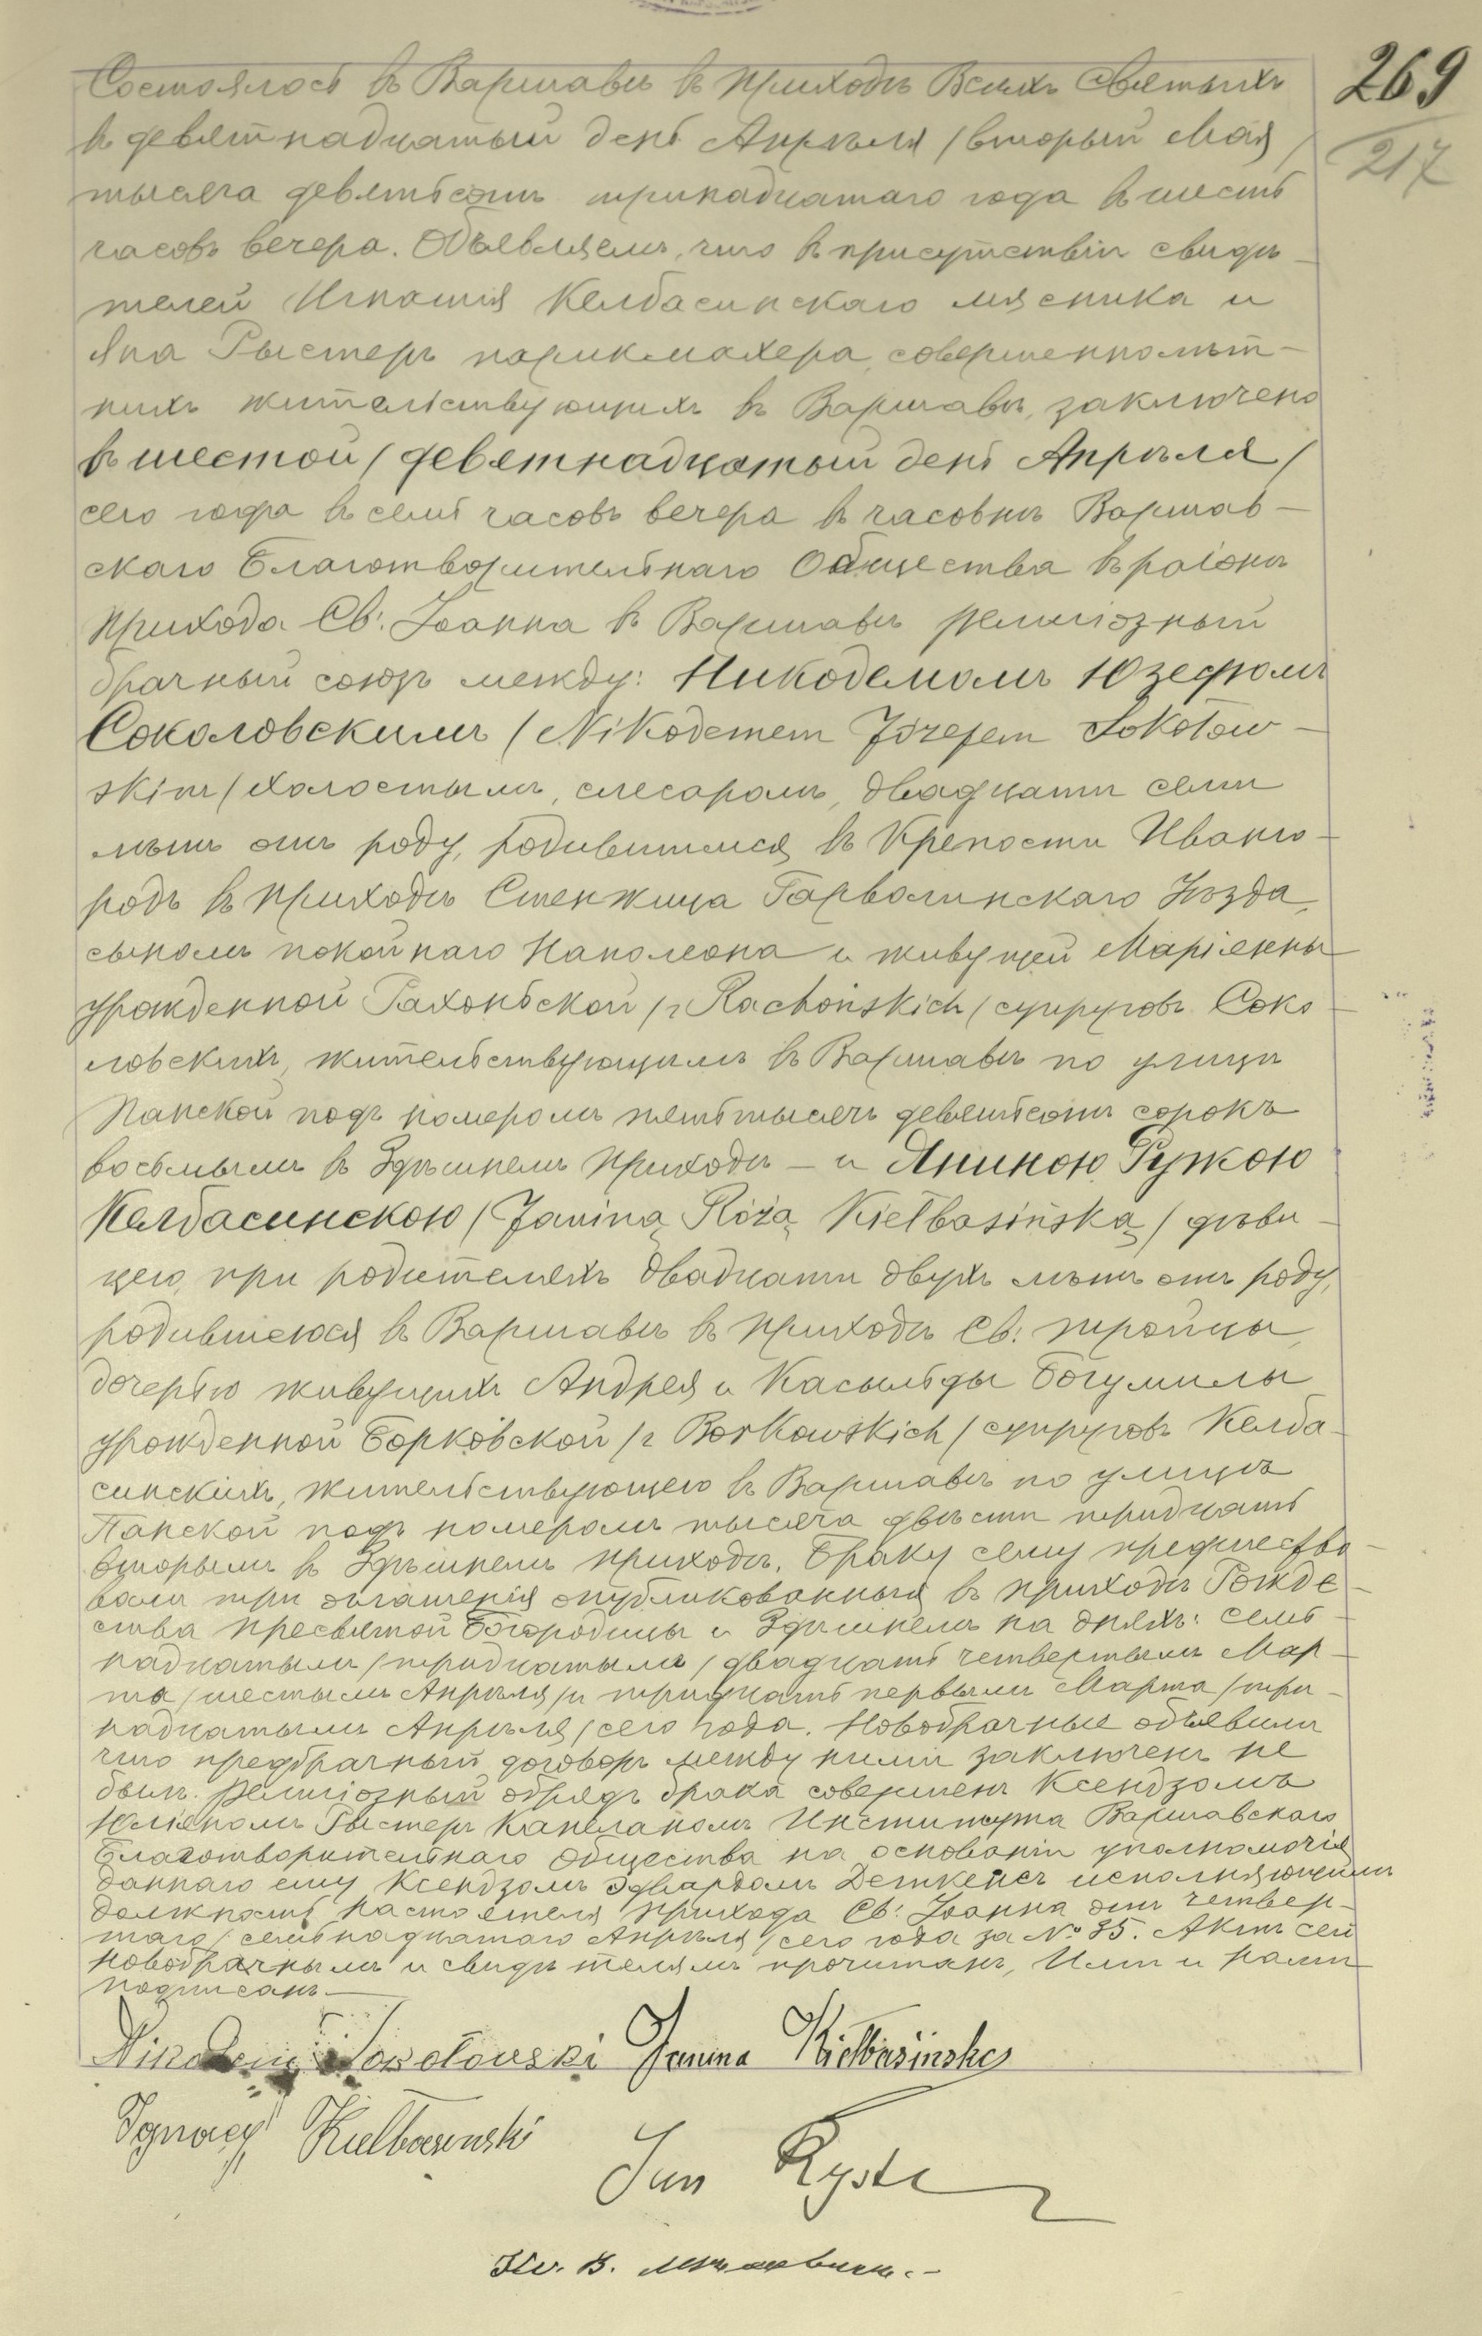 269
217
Состоялось въ Варшавѣ въ приходѣ Всѣхъ Святыхъ
въ девятнадцатый день Апрѣля /второй Мая/
тысяча девятьсотъ тринадцатаго года въ шесть
часовъ вечера. Объявляемъ, что въ присутствіи свидѣ-
телей Игнатія Келбасинскаго мясника и
Яна Рыстеръ парикмахера, совершеннолѣт-
нихъ жительствующихъ въ Варшавѣ, заключено
въ шестой /девятнадцатый день Апрѣля/
сего года въ семь часовъ вечера въ часовнѣ Варшав-
скаго Благотворительнаго Общества въ раіонѣ
прихода Св. Іоанна въ Варшавѣ религіозный
брачный союзъ между: Никодемомъ Юзефомъ
Соколовскимъ /Nikodemem Józefem Sokołow-
skim/ холостымъ, слесаромъ, двадцати семи
лѣтъ отъ роду, родившимся въ Крепости Иванго-
родъ въ приходѣ Стенжица Гарволинскаго Уѣзда,
сыномъ покойнаго Наполеона и живущей Маріянны
урожденной Рахоньской /z Rachońskich/ супруговъ Соко-
ловскихъ, жительствующимъ въ Варшавѣ по улицѣ
Панской подъ номеромъ пять тысячъ девятьсотъ сорокъ
восьмымъ въ Здѣшнемъ приходѣ — и Яниною Ружою
Келбасинскою /Janiną Różą Kiełbasińską/ дѣви-
цею, при родителяхъ двадцати двухъ лѣтъ отъ роду,
родившеюся въ Варшавѣ въ приходѣ Св. Тройцы,
дочерью живущихъ Андрея и Касыльды Богумилы
урожденной Борковской /z Borkowskich/ супруговъ Келба-
синскихъ, жительствующею въ Варшавѣ по улицѣ
Панской подъ номеромъ тысяча двѣсти тридцать
вторымъ въ Здѣшнемъ приходѣ. Браку сему предшество-
вали три оглашенія опубликованныя въ приходѣ Рожде-
ства Пресвятой Богородицы и Здѣшнемъ на дняхъ: семь-
надцатымъ /тридцатымъ/, двадцать четвертымъ Мар-
та /шестымъ Апрѣля/ и тридцать первымъ Марта /три-
надцатымъ Апрѣля/ сего года. Новобрачные объявили
что предбрачный договоръ между ними заключенъ не
былъ. Религіозный обрядъ брака совершенъ Ксендзомъ
Юліяномъ Рыстеръ Капеланомъ Института Варшавскаго
Благотворительнаго Общества на основаніи уполномочія
даннаго ему Ксендзомъ Эдвардомъ Деткенсъ исполняющимъ
должность настоятеля прихода Св. Іоанна отъ четвер-
таго /семьнадцатаго Апрѣля/ сего года за № 35. Актъ сей
новобрачнымъ и свидѣтелямъ прочитанъ, Ими и нами
подписанъ.—
Nikodem Sokołowski Janina Kiełbasińska
Ignacy Kiełbasiński
Jan Ryster